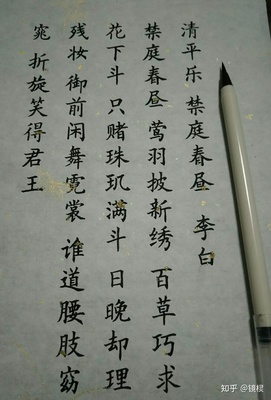 清平乐 禁庭春昼 李白
禁庭春昼 莺羽披新绣 百草巧求
花下斗 只赌珠玑满斗 日晚却理
残妆 御前闲舞霓裳 谁道腰肢窈
窕 折旋笑得君王
知乎 @镜楼